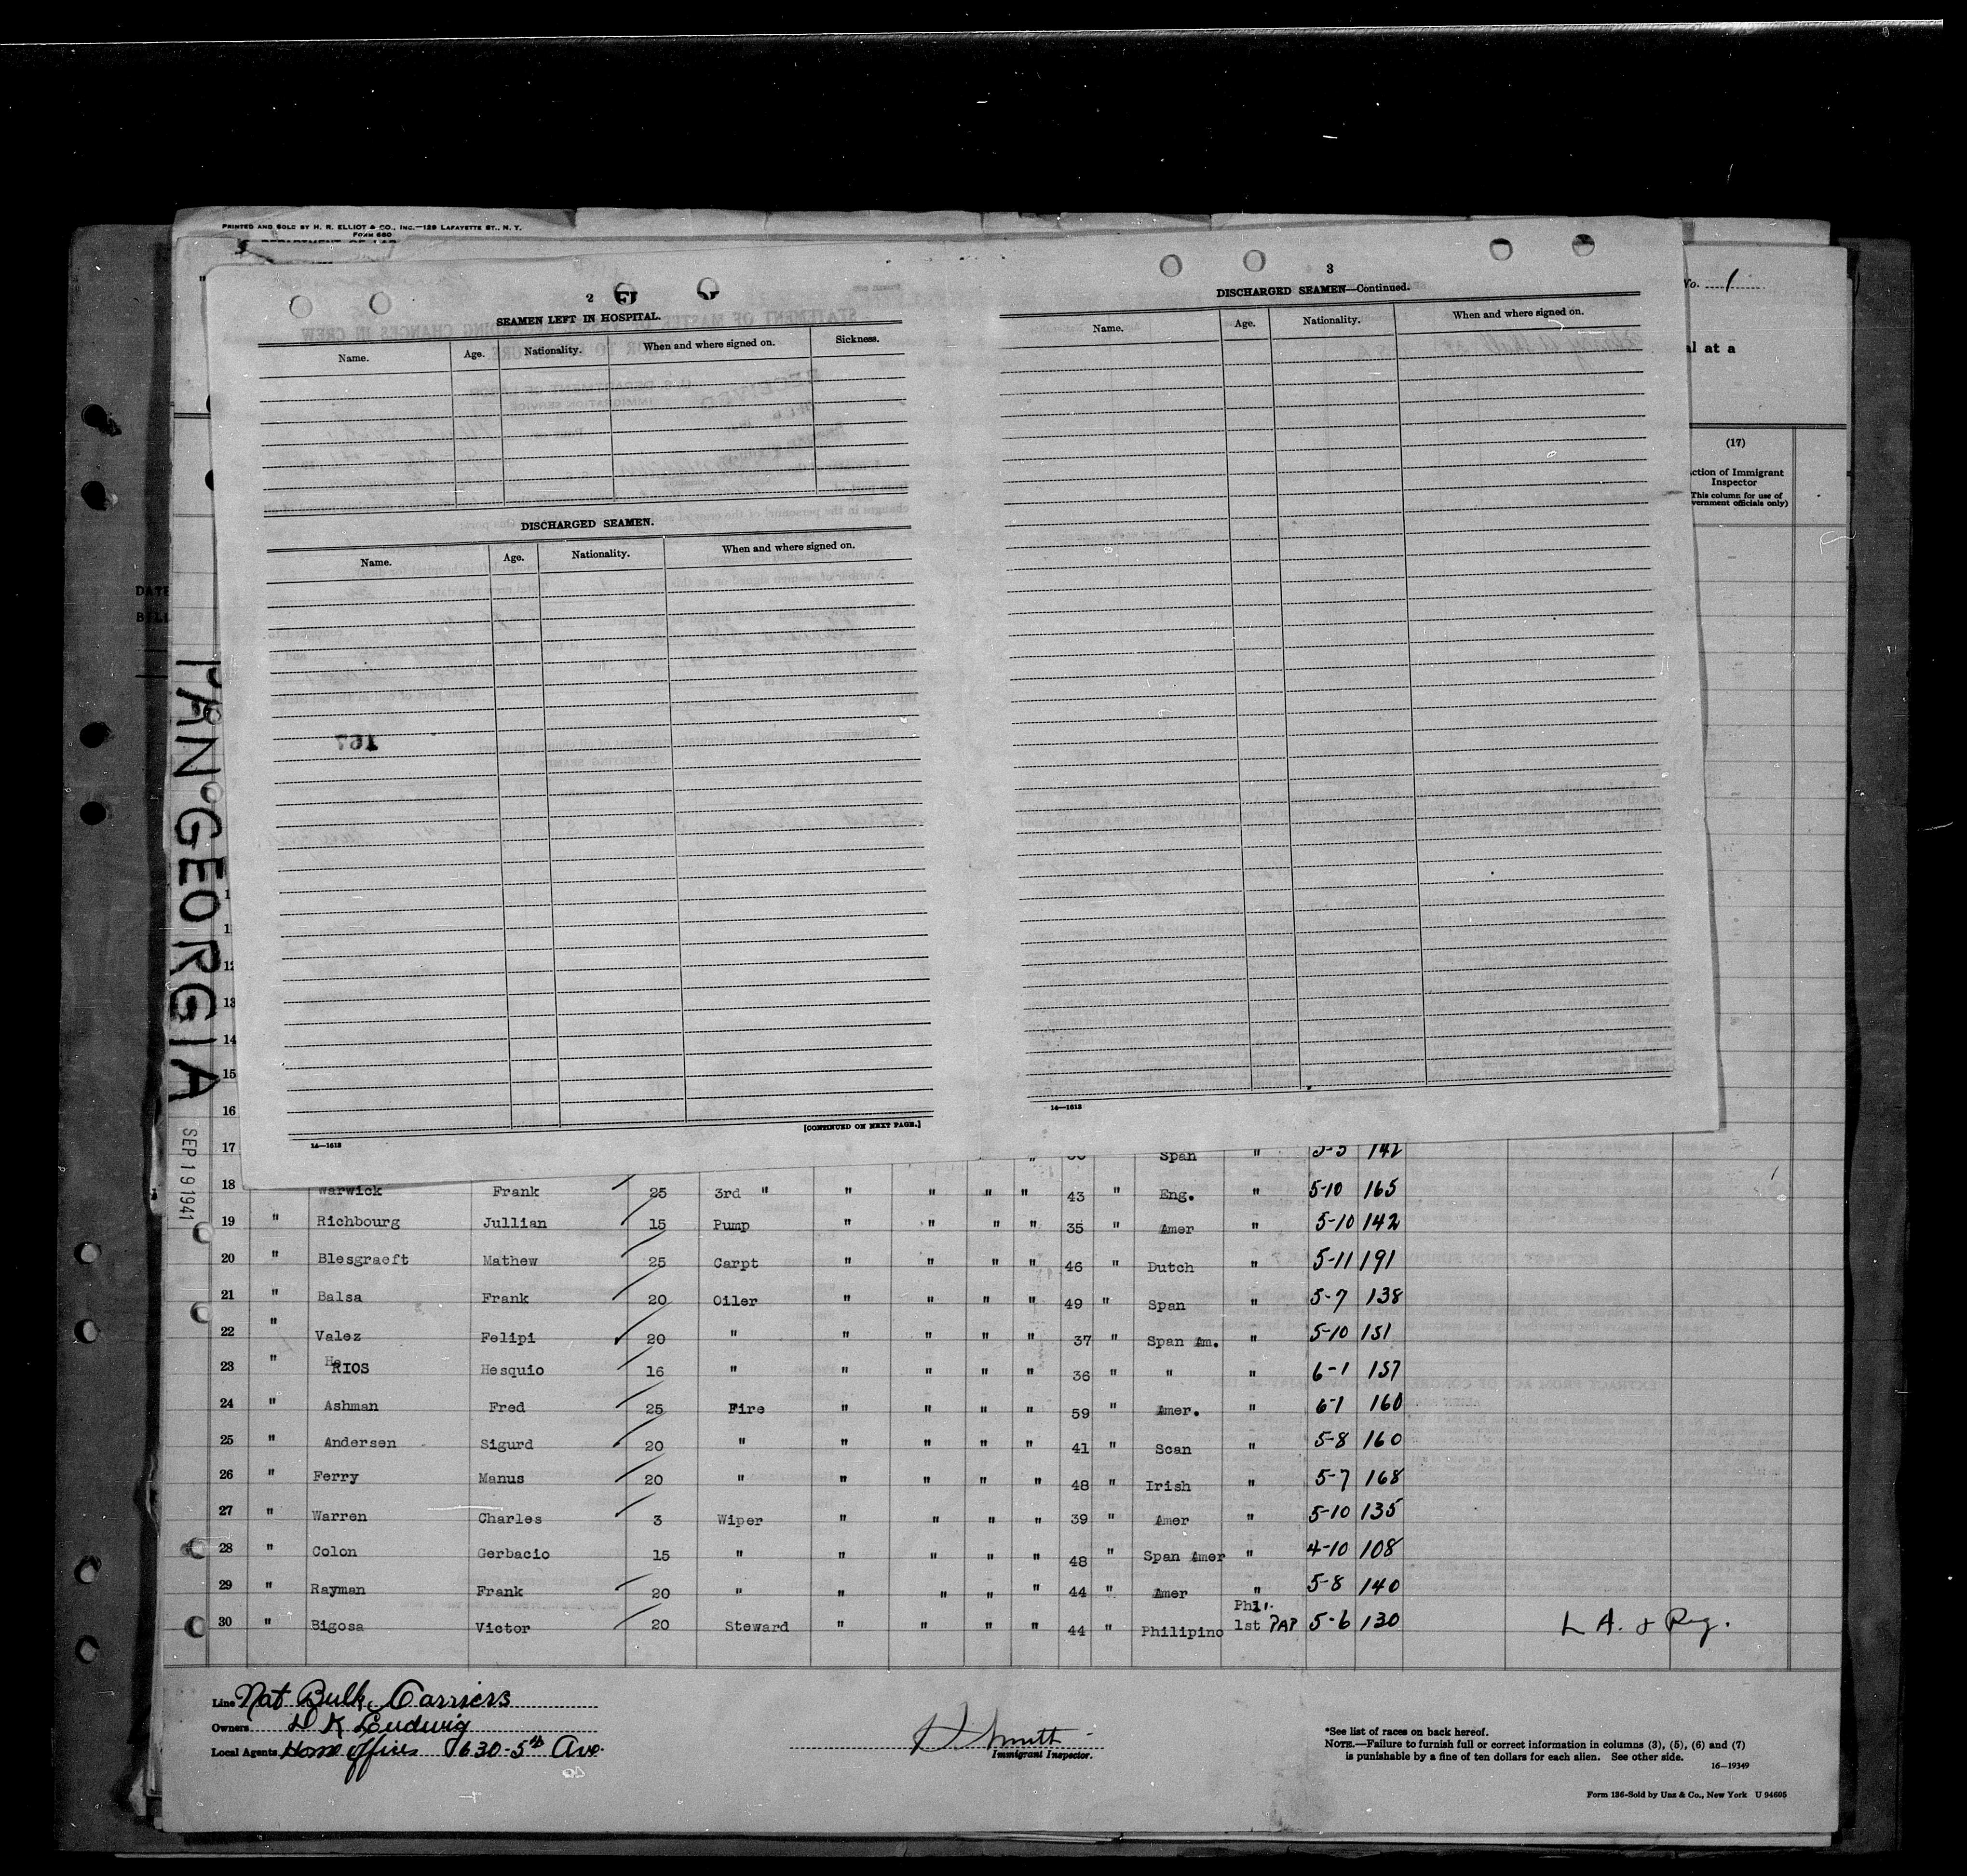 PRINTED AND SOLD BY H. R. ELLIOT & CO., INC.—129 LAFAYETTE ST., N. Y.
FORM 680
2
SEAMEN LEFT IN HOSPITAL.
Name. Age. Nationality. When and where signed on. Sickness.
DISCHARGED SEAMEN.
Name. Age. Nationality. When and where signed on.
167
14—1613
[CONTINUED ON NEXT PAGE.]
3
DISCHARGED SEAMEN—Continued.
Name. Age. Nationality. When and where signed on.
14—1613
No. 1
al at a
(17)
ction of Immigrant
Inspector
This column for use of
vernment officials only)
DATE
BILL
PAN GEORGIA
SEP 19 1941
12
13
14
15
16
17 Span " 5-5 142
18 Warwick Frank 25 3rd " " " " " 43 " Eng. " 5-10 165
19 " Richbourg Jullian 15 Pump " " " " 35 " Amer " 5-10 142
20 " Blesgraeft Mathew 25 Carpt " " " " 46 " Dutch " 5-11 191
21 " Balsa Frank 20 Oiler " " " " 49 " Span " 5-7 138
22 " Valez Felipi 20 " " " " " 37 " Span Am. " 5-10 151
23 " RIOS Hesquio 16 " " " " " 36 " " " 6-1 157
24 " Ashman Fred 25 Fire " " " " 59 " Amer. " 6-1 160
25 " Andersen Sigurd 20 " " " " " 41 " Scan " 5-8 160
26 " Ferry Manus 20 " " " " " 48 " Irish " 5-7 168
27 " Warren Charles 3 Wiper " " " " 39 " Amer " 5-10 135
28 " Colon Gerbacio 15 " " " " " 48 " Span Amer " 4-10 108
29 " Rayman Frank 20 " " " " " 44 " Amer " 5-8 140
30 " Bigosa Victor 20 Steward " " " " 44 " Philipino Phil. 1st PAP 5-6 130 L A. & Reg.
Line Nat Bulk Carriers
Owners D K Ludwig
Local Agents Home office 630-5th Ave.
Immigrant Inspector.
*See list of races on back hereof.
NOTE.—Failure to furnish full or correct information in columns (3), (5), (6) and (7)
is punishable by a fine of ten dollars for each alien. See other side.
16—19349
Form 136-Sold by Unz & Co., New York U 94605